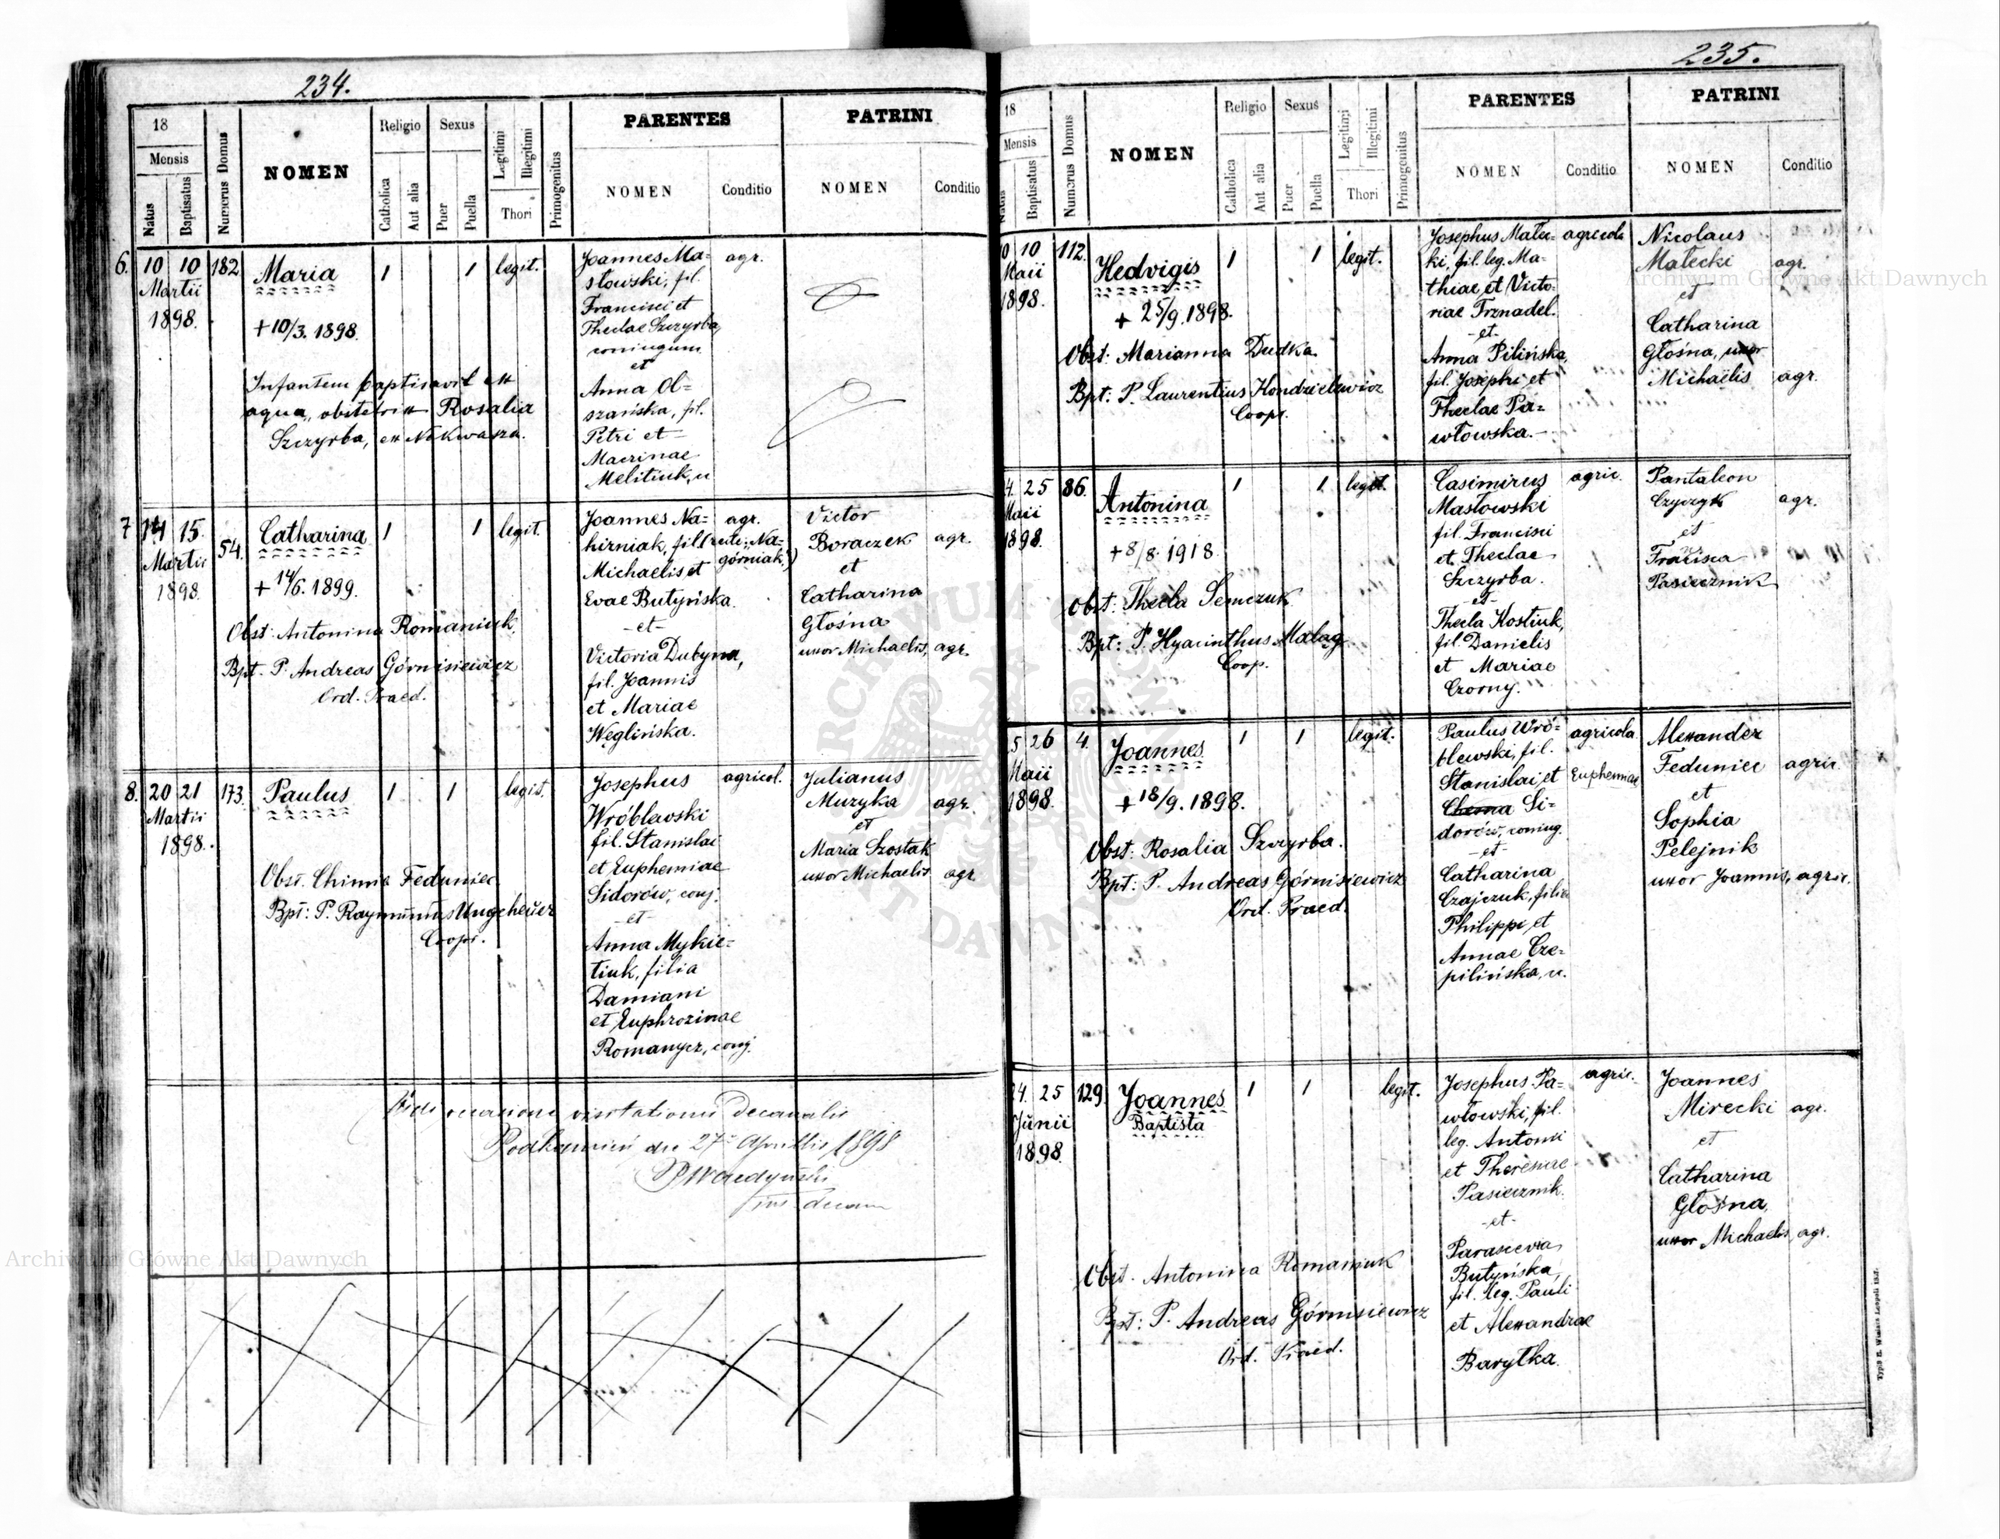 234.
18
Mensis
Natus
Baptisatus
Numerus Domus
NOMEN
Religio
Catholica
Aut alia
Sexus
Puer
Puella
Legitimi
Illegitimi
Thori
Primogenitus
PARENTES
NOMEN
Conditio
PATRINI
NOMEN
Conditio
6. 10 10 182 Maria 1 1 legit.
Martii
1898.
+ 10/3. 1898.
Infantem baptisavit ex
aqua, obstetrix Rosalia
Szczyrba, ex Nakwasza.
Joannes Ma- agr.
słowski, fil.
Francisci et
Theclae Szczyrba,
coniugum
et
Anna Ol-
szańska, fil.
Petri et
Macrinae
Melitiuk, u
7 14 15. 54. Catharina 1 1 legit.
Martii
1898.
+ 14/6. 1899.
Obst: Antonina Romaniuk
Bpt. P. Andreas Górnisiewicz
Ord. Praed.
Joannes Na- agr.
hirniak, fil. (recte: Na-
Michaelis et górniak)
Evae Butyńska.
-et-
Victoria Dubyna,
fil. Joannis
et Mariae
Węglińska.
Victor
Boraczek agr.
et
Catharina
Głośna
uxor Michaelis, agr.
8. 20 21 173. Paulus 1 1 legit.
Martii
1898.
Obst. Chimia Feduniec
Bpt: P. Raymundus Ungeheuer
Coop.
Josephus agricol.
Wróblewski
fil. Stanislai
et Euphemiae
Sidorów, conj.
-et-
Anna Mykie-
tiuk, filia
Damiani
et Euphrozinae
Romanycz, conj.
Julianus
Muzyka agr.
et
Maria Szostak
uxor Michaelis agr.
Vidi occasione visitationis decanalis
Podkamień die 27 Aprilis 1898
235.
18
Mensis
Natus
Baptisatus
Numerus Domus
NOMEN
Religio
Catholica
Aut alia
Sexus
Puer
Puella
Legitimi
Illegitimi
Thori
Primogenitus
PARENTES
NOMEN
Conditio
PATRINI
NOMEN
Conditio
0 10 112. Hedvigis 1 1 legit.
Maii
1898.
+ 25/9. 1898.
Obst: Marianna Dudka.
Bpt: P. Laurentius Kondzielewicz
Coop.
Josephus Małec- agricola
ki, fil. leg. Ma-
thiae et Victo-
riae Trznadel.
-et-
Anna Pilińska,
fil. Josephi et
Theclae Pa-
włowska.-
Nicolaus
Małecki agr.
et
Catharina
Głośna, uxor
Michaelis agr.
4. 25 86. Antonina 1 1 legit.
Maii
1898.
+ 8/8. 1918.
Obst: Thecla Semczuk
Bpt: P. Hyacinthus Malag
Coop.
Casimirus agric.
Masłowski
fil. Francisci
et Theclae
Szczyrba.
-et-
Thecla Kostiuk,
fil. Danielis
et Mariae
Czorny.
Pantaleon
Czyczyk agr.
et
Francisca
Pasiecznik
5 26 4. Joannes 1 1 legit.
Maii
1898.
+ 18/9. 1898.
Obst: Rosalia Szczyrba.
Bpt: P. Andreas Górnisiewicz
Ord. Praed.
Paulus Wró- agricola
blewski, fil.
Stanislai, et Euphemiae
Si-
dorów, coniug.
-et-
Catharina
Czajczuk, filia
Philippi, et
Annae Cze-
pilińska, u.
Alexander
Feduniec agric.
et
Sophia
Pelejnik
uxor Joannis, agric.
24. 25 129. Joannes 1 1 legit.
Junii Baptista
1898.
Obst. Antonina Romaniuk
Bpt: P. Andreas Górnisiewicz
Ord. Praed.
Josephus Pa- agric.
włowski, fil.
leg. Antonii
et Theresiae
Pasiecznik.
-et-
Parascevia
Butyńska,
fil. leg. Pauli
et Alexandrae
Baryłka.
Joannes
Mirecki agr.
et
Catharina
Głośna,
uxor Michaelis, agr.
Archiwum Główne Akt Dawnych
Archiwum Główne Akt Dawnych
ARCHIWUM GŁÓWNE AKT DAWNYCH